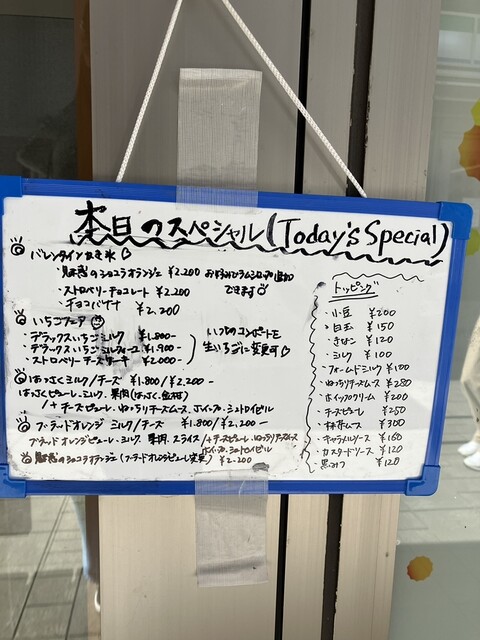 本日のスペシャル(Today's Special)
バレンタインかき氷♡
・魅惑のショコラオランジェ ¥2.200 お好みでラムシロップ追加
できます
・ストロベリーチョコレート ¥2.200
・チョコバナナ ¥2.200
いちごフェア
・デラックスいちごミルク ¥1.800-
・デラックスいちごミルフィーユ ¥1.900-
・ストロベリーチーズケーキ ¥2.000-
いちごのコンポートを
生いちごに変更可♡
はっさくミルク/チーズ ¥1.800/¥2.200-
はっさくピューレ、ミルク、果肉(はっさく、金柑)
/+チーズピューレ・ねっちりチーズムース、ホイップ・シュトロイゼル
ブラッドオレンジ ミルク/チーズ ¥1.800/¥2.200-
ブラッドオレンジピューレ・ミルク 果肉、スライス
/+チーズピューレ・ねっちりチーズムース
ホイップ・シュトロイゼル
魅惑のショコラオランジェ(ブラッドオレンジピューレ変更) ¥2.200
トッピング
・小豆 ¥200
・白玉 ¥150
・きなこ ¥120
・ミルク ¥100
・フォームドミルク ¥100
・ねっちりチーズムース ¥280
・ホイップクリーム ¥200
・チーズピューレ ¥250
・抹茶ムース ¥300
・キャラメルソース ¥160
・カスタードソース ¥120
・黒みつ ¥120